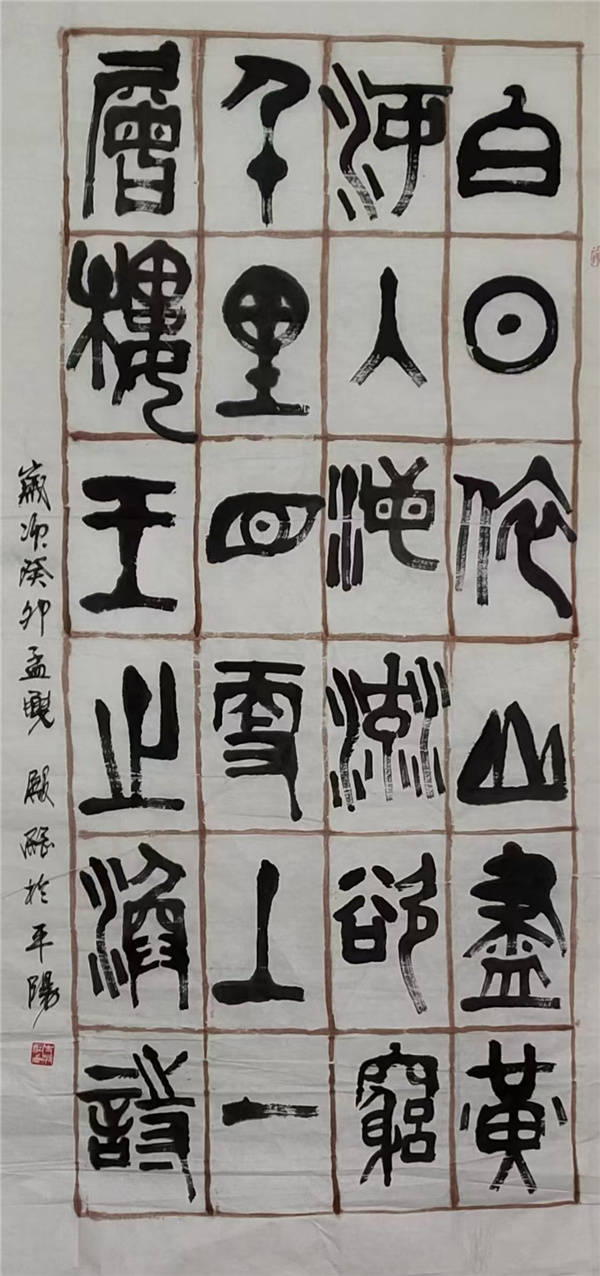 白日依山盡黃
河入海流欲窮
千里目更上一
層樓王之渙詩
歲次癸卯孟夏 殿於平陽